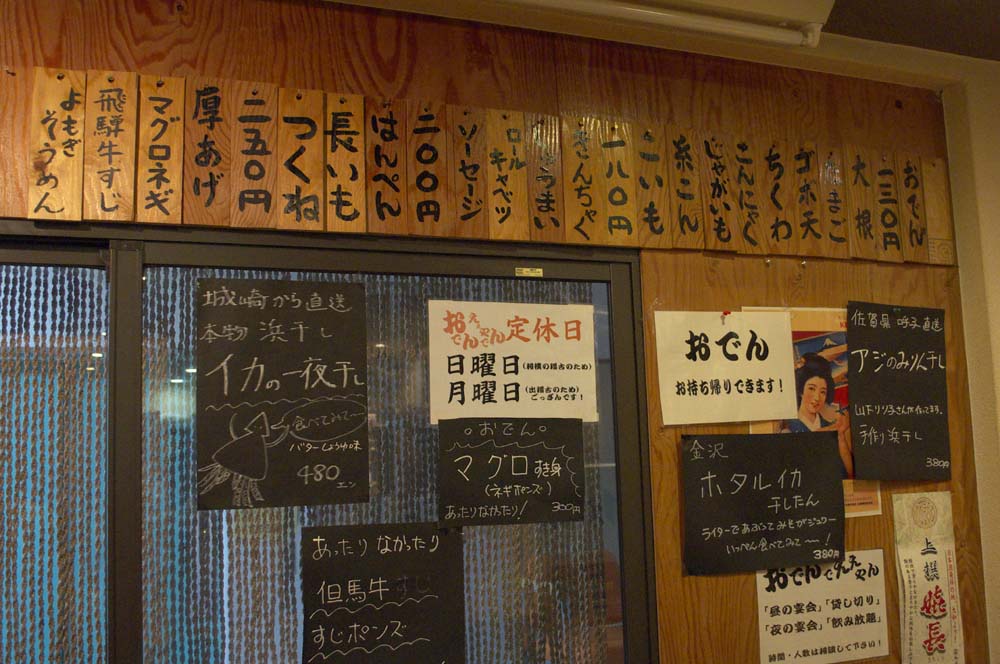 おでん
一三〇円
大根
たまご
ゴボ天
ちくわ
こんにゃく
じゃがいも
糸こん
こいも
一八〇円
きんちゃく
ロールキャベツ
ソーセージ
二〇〇円
はんぺん
長いも
つくね
二五〇円
厚あげ
マグロネギ
飛騨牛すじ
よもぎ
そうめん
城崎から直送
本物 浜干し
イカの一夜干し
食べてみて〜
バターしょうゆ味
480
エン
おでんでんええやん 定休日
日曜日(相撲の稽古のため)
月曜日(出稽古のため)
ごっざんです!
おでん
マグロすき身
(ネギポンズ)
あったりなかったり!
300円
あったり なかったり
但馬牛すじ
すじポンズ
おでん
お持ち帰りできます!
佐賀県 呼子直送
アジのみりん干し
山下リツ子さんが作ってます。
手作り浜干し
380円
金沢
ホタルイカ
干したん
ライターであぶってみそがジュワー
いっぺん食べてみて〜!
380円
おでんでんええやん
「昼の宴会」「貸し切り」
「夜の宴会」「飲み放題」
時間・人数は相談して下さい!
上撰